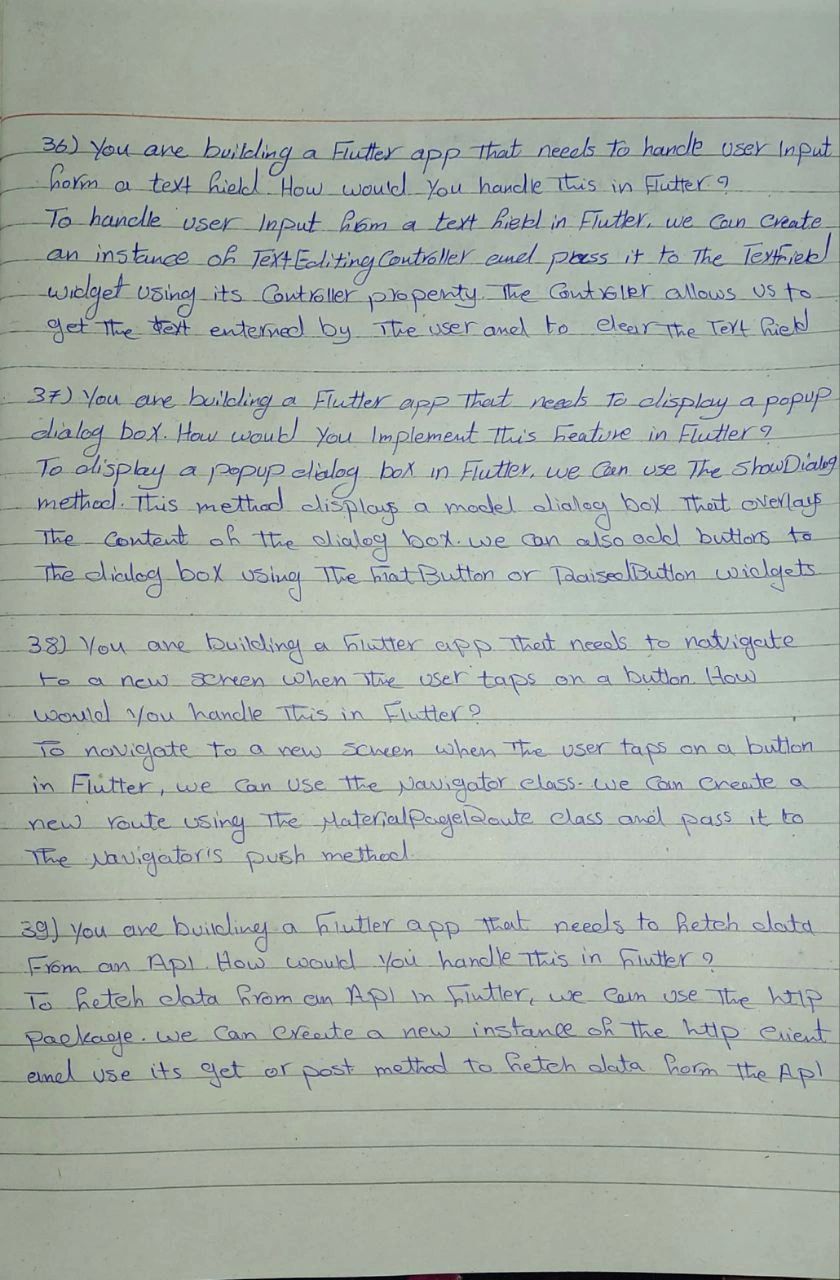 36) You are building a Flutter app that needs to handle user Input
form a text field. How would you handle this in Flutter?
To handle user Input from a text field in Flutter, we can create
an instance of TextEditingController and pass it to the Textfield
widget using its Controller property. The Controller allows us to
get the text enterned by the user and to clear the Text field
37) You are building a Flutter app that needs to display a popup
dialog box. How would you Implement this feature in Flutter?
To display a popup dialog box in Flutter, we can use the ShowDialog
method. This method displays a model dialog box that overlays
the content of the dialog box. we can also add buttons to
the dialog box using the flatButton or RaisedButton widgets
38) You are building a flutter app that needs to natvigate
to a new screen when the user taps on a button. How
would you handle this in Flutter?
To navigate to a new screen when the user taps on a button
in Flutter, we can use the Navigator class. we can create a
new route using the MaterialPageRoute class and pass it to
the Navigator's push method.
39) You are building a flutter app that needs to fetch data
From an API. How would you handle this in flutter?
To fetch data from an API in flutter, we can use the http
package. we can create a new instance of the http client
and use its get or post method to fetch data form the API